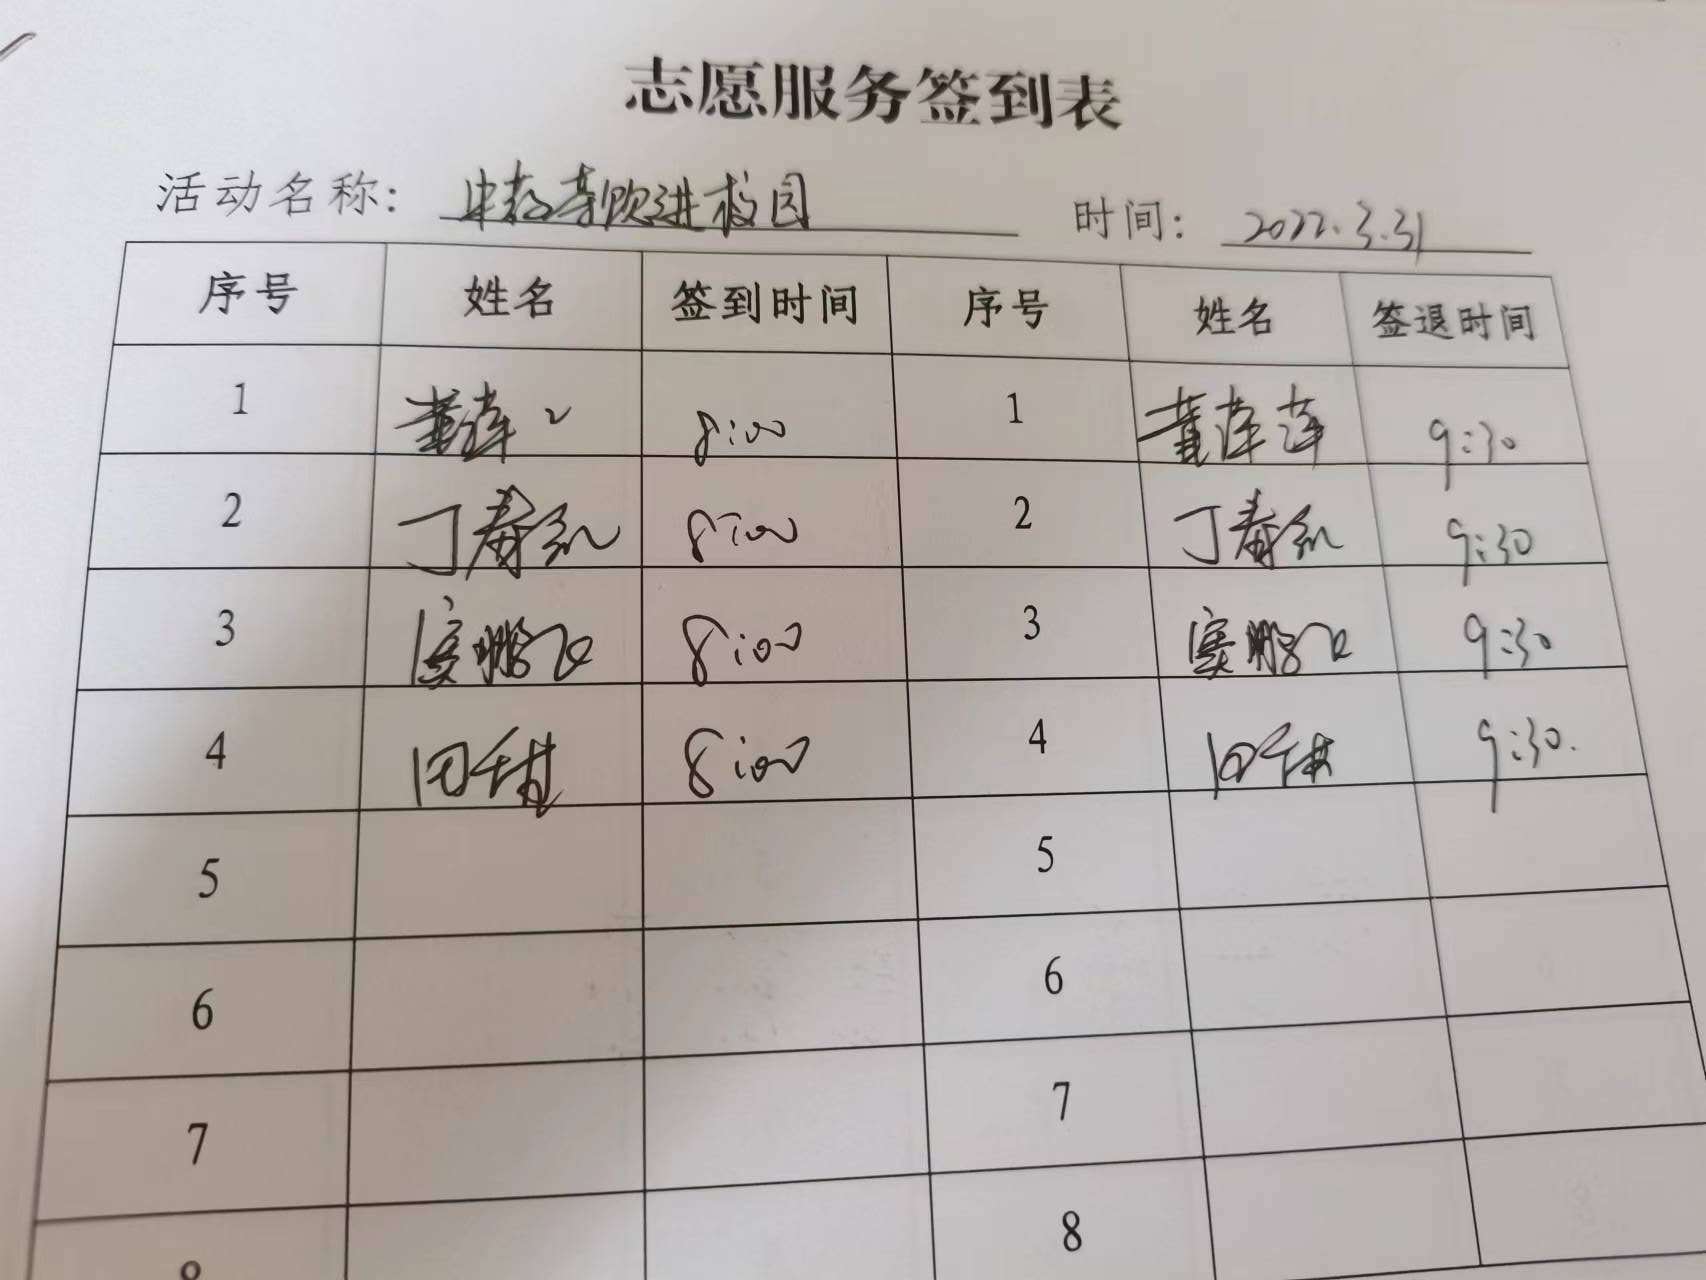 志愿服务签到表
活动名称： 进校园 时间： 2022.3.31
序号 姓名 签到时间 序号 姓名 签退时间
1 董莲〻 8:00 1 董莲莲 9:30
2 丁春红 8:00 2 丁春红 9:30
3 鹏飞 8:00 3 鹏飞 9:30
4 田甜 8:00 4 田甜 9:30.
5 5
6 6
7 7
8 8